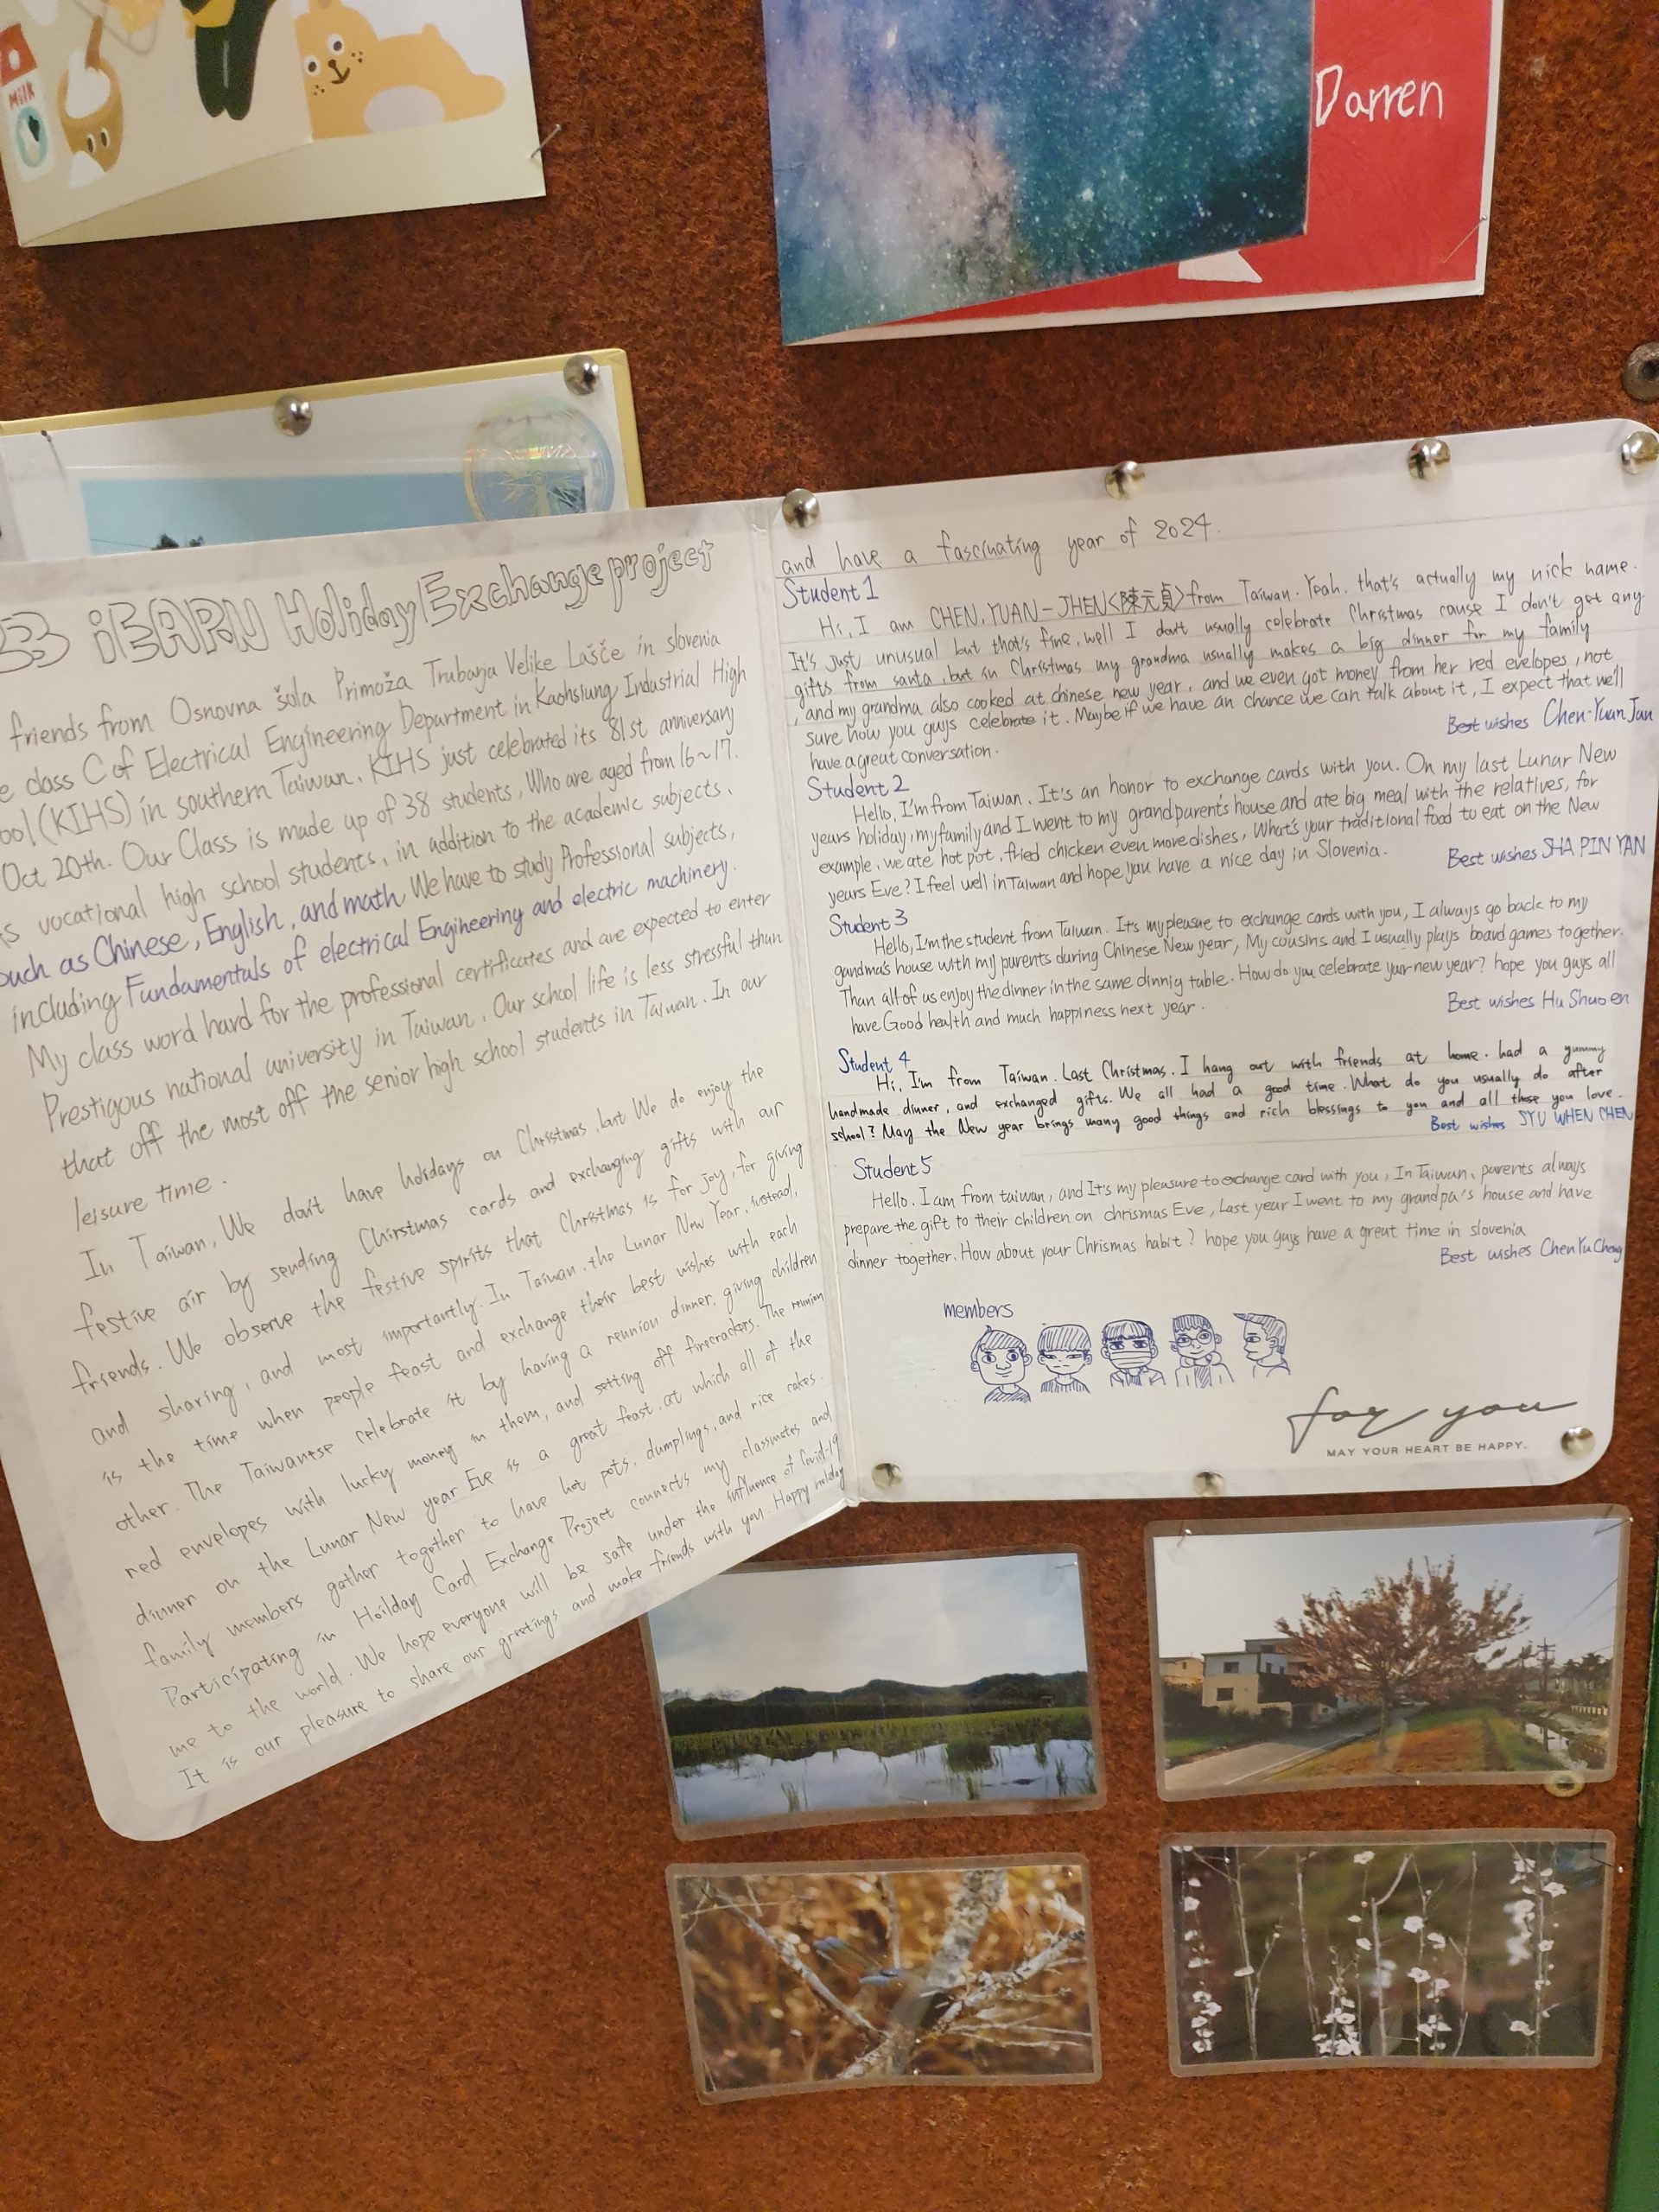 Milk
Darren
3 iEARN Holiday Exchange project
friends from Osnovna šola Primoža Trubarja Velike Lašče in slovenia
class C of Electrical Engineering Department in Kaohsiung Industrial High
ool (KIHS) in southern Taiwan. KIHS just celebrated its 81st anniversary
Oct 20th. Our Class is made up of 38 students, Who are aged from 16~17.
s vocational high school students, in addition to the academic subjects.
such as Chinese, English, and math. We have to study Professional subjects,
including Fundamentals of electrical Engineering and electric machinery.
My class word hard for the professional certificates and are expected to enter
Prestigous national university in Taiwan. Our school life is less stressful than
that off the most off the senior high school students in Taiwan. In our
leisure time.
In Taiwan, We don't have holidays on Christmas, but We do enjoy the
festive air by sending Chirstmas cards and exchanging gifts with our
friends. We observe the festive spirits that Christmas is for joy, for giving
and sharing, and most importantly. In Taiwan, the Lunar New Year, instead,
is the time when people feast and exchange their best wishes with each
other. The Taiwanese celebrate it by having a reunion dinner, giving children
red envelopes with lucky money in them, and setting off firecrackers. The reunion
dinner on the Lunar New year Eve is a great feast, at which all of the
family members gather together to have hot pots, dumplings, and rice cakes.
Participating in Hoilday Card Exchange Project connects my classmates and
me to the world. We hope everyone will be safe under the influence of Covid-19.
It is our pleasure to share our greetings and make friends with you. Happy holiday
and have a fascinating year of 2024.
Student 1
Hi, I am CHEN, YUAN-JHEN<陳元貞>from Taiwan. Yeah. that's actually my nick name.
It's just unusual but that's fine, well I don't usually celebrate Christmas cause I don't get any
gifts from santa, but in Christmas my grandma usually makes a big dinner for my family
, and my grandma also cooked at chinese new year, and we even got money from her red evelopes, not
sure how you guys celebrate it. Maybe if we have an chance we can talk about it, I expect that we'll
have a great conversation.
Best wishes Chen-Yuan Jan
Student 2
Hello, I'm from Taiwan. It's an honor to exchange cards with you. On my last Lunar New
years holiday, my family and I went to my grandparent's house and ate big meal with the relatives, for
example, we ate hot pot, fried chicken even more dishes, What's your traditional food to eat on the New
years Eve? I feel well in Taiwan and hope you have a nice day in Slovenia.
Best wishes SHA PIN YAN
Student 3
Hello, I'm the student from Taiwan. It's my pleasure to exchange cards with you, I always go back to my
gandma's house with my parents during Chinese New year, My cousins and I usually plays board games together.
Than all of us enjoy the dinner in the same dinnig table. How do you celebrate your new year? hope you guys all
have Good health and much happiness next year.
Best wishes Hu Shuo en
Student 4
Hi, I'm from Taiwan. Last Christmas. I hang out with friends at home. had a yummy
handmade dinner, and exchanged gifts. We all had a good time. What do you usually do after
school? May the New year brings many good things and rich blessings to you and all those you love.
Best wishes SYU WHEN CHEN
Student 5
Hello. I am from taiwan, and It's my pleasure to exchange card with you, In Taiwan, parents always
prepare the gift to their children on chrismas Eve, Last year I went to my grandpa's house and have
dinner together. How about your Chrismas habit? hope you guys have a great time in slovenia
Best wishes Chen Yu Cheng
members
for you
MAY YOUR HEART BE HAPPY.